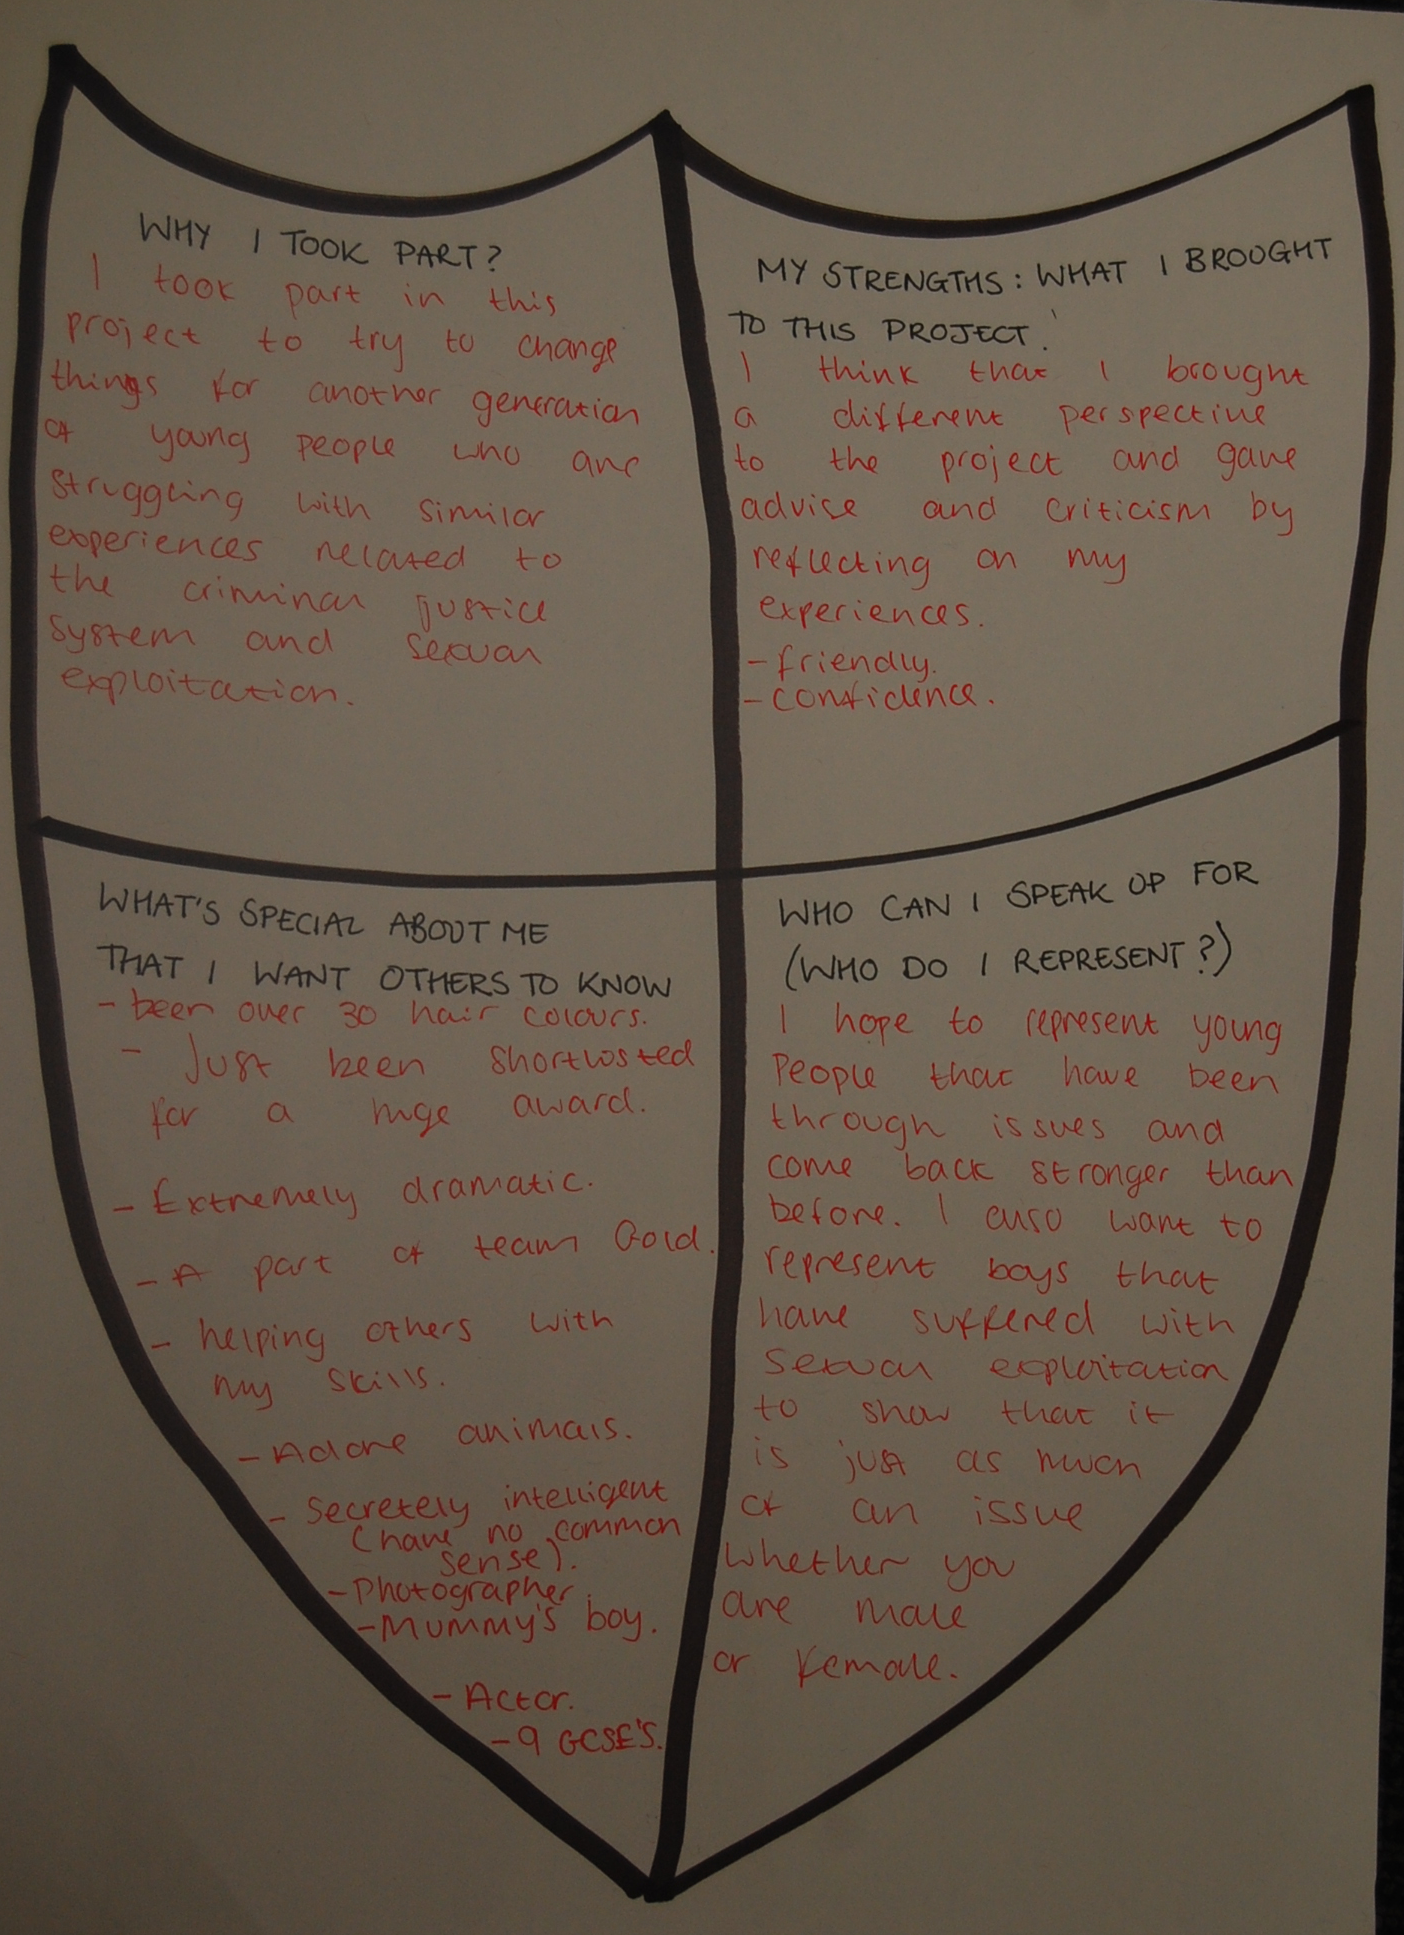 WHY I TOOK PART?
I took part in this
project to try to change
things for another generation
of young people who are
struggling with similar
experiences related to
the criminal justice
system and sexual
exploitation.
MY STRENGTHS: WHAT I BROUGHT
TO THIS PROJECT.
I think that I brought
a different perspective
to the project and gave
advise and criticism by
reflecting on my
experiences.
- friendly.
- confidence.
WHAT'S SPECIAL ABOUT ME
THAT I WANT OTHERS TO KNOW
- been over 30 hair colours.
- Just been shortlisted
for a huge award.
- Extremely dramatic.
- A part of team Gold.
- helping others with
my skills.
- Adore animals.
- Secretely intelligent
(have no common
sense).
- Photographer.
- Mummy's boy.
- Actor.
- 9 GCSE'S.
WHO CAN I SPEAK UP FOR
(WHO DO I REPRESENT?)
I hope to represent young
People that have been
through issues and
come back stronger than
before. I also want to
represent boys that
have suffered with
sexual exploitation
to show that it
is just as much
of an issue
whether you
are male
or female.